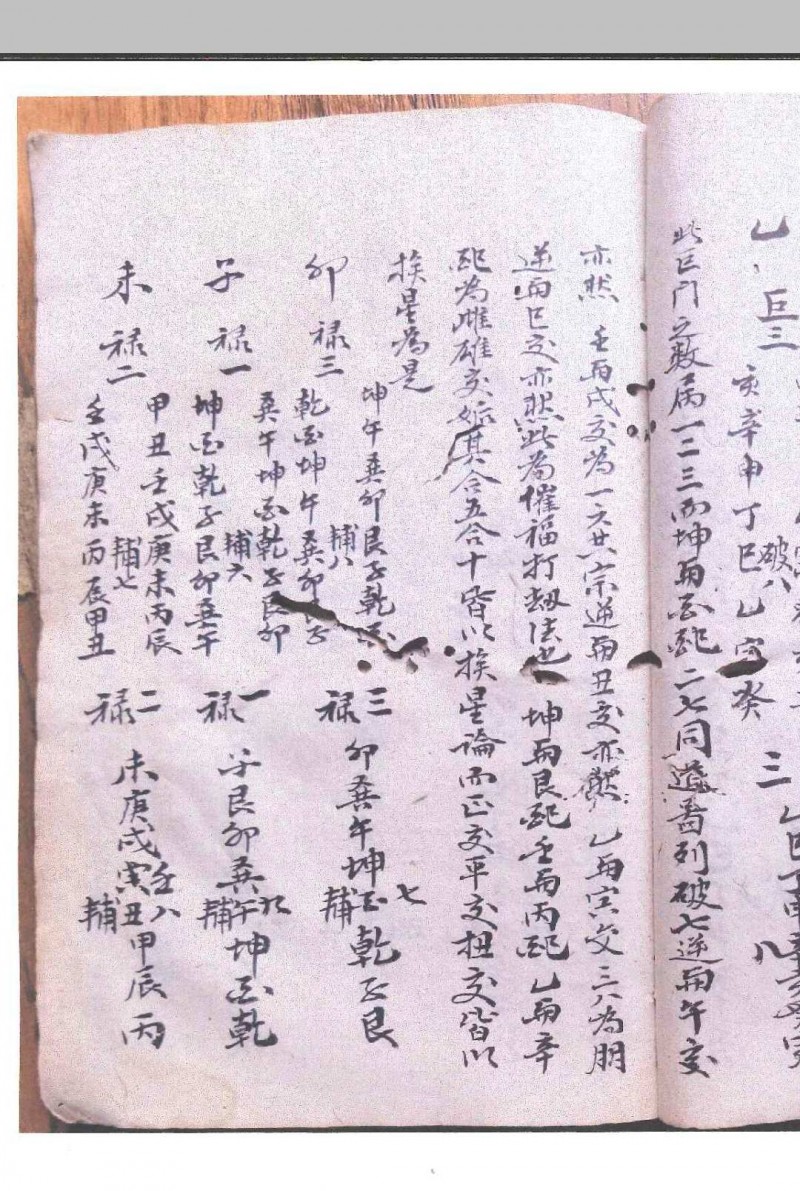 乙 巨三
亥辛申丁巳乙寅癸
破八
三
此巨門之数居一二三而坤兩酉配二七同道番列破七逆兩午交
亦然 壬兩戌交為一六共宗逆兩丑交亦然 乙兩寅交三八為朋
逆兩巳交亦然此為催福打劫法也 坤兩艮配壬兩丙配乙兩辛
配為雌雄交媾其合五合十皆以挨星論而正交平交扭交皆以
挨星為是
卯 禄三
坤午巽卯艮子乾酉
輔八
乾酉坤午巽卯艮子
三禄
卯巽午坤酉乾子艮
七輔
子 禄一
巽午坤酉乾子艮卯
輔六
坤酉乾子艮卯巽午
一禄
子艮卯巽午坤酉乾
九輔
未 禄二
甲丑壬戌庚未丙辰
輔七
壬戌庚未丙辰甲丑
二禄
未庚戌壬丑甲辰丙
八輔